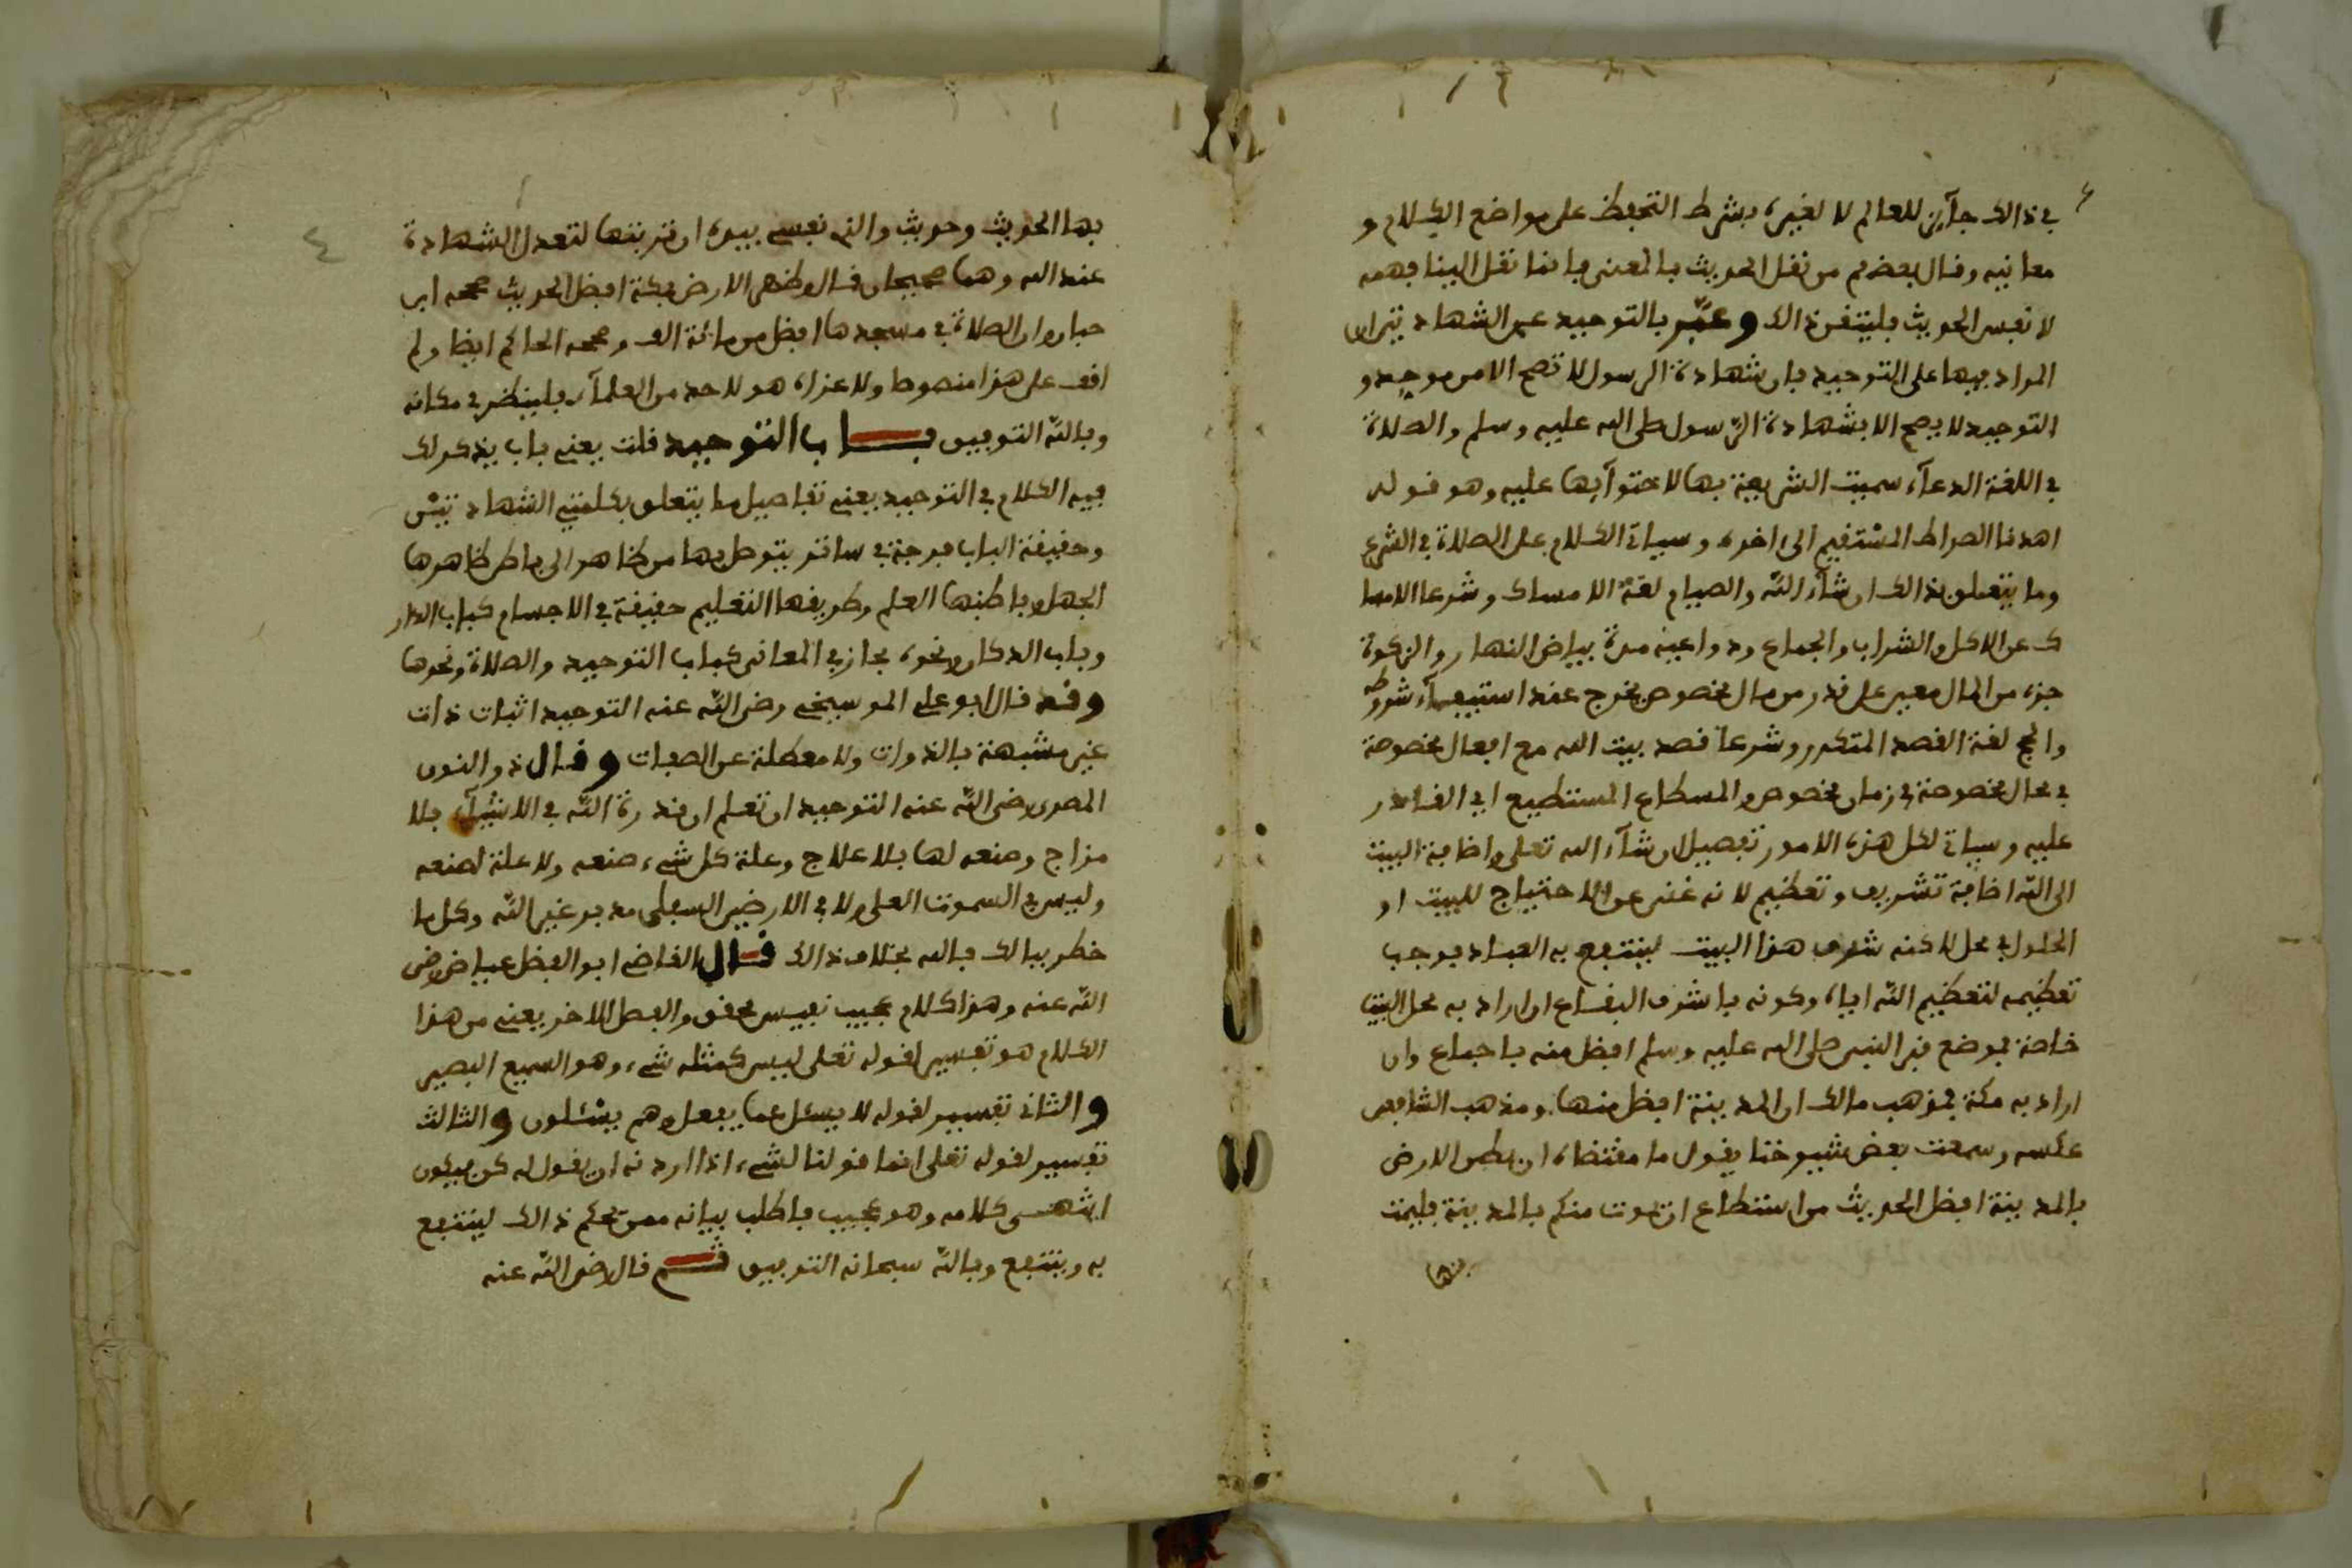 في ذالك جآيز للعالم لا لغيره بشرط التحفظ على مواضع الكلام و
معانيه وقال بعضهم من نقل الحديث بالمعنى فانما نقل الينا فهمه
لا نفس الحديث فليتفن ذالك وعبّر بالتوحيد عن الشهادتين لان
المراد بهما على التوحيد فان شهادة الرسول لا تصح الا من موحد و
التوحيد لا يصح الا بشهادة الرّسول صلى الله عليه وسلم والصلاة
في اللغة الدعآء سميت الشريعية بها لاحتوآيها عليه وهو قوله
اهدنا الصراط المسْتقيم الى اخره وسياتي الكلام على الصلاة في الشرع
وما يتعلق بذالك ان شآء اللّه والصيام لغة الامساك وشرعا الامسا
ك عن الاكل والشراب والجماع ودواعيه مدة بياض النهار والزكوة
جزء من المال معين على قدر من مال مخصوص يخرج عند استيفآء شروطه
والحج لغة القصد المتكرر وشرعا قصد بيت الله مع افعال مخصوصة
في محال مخصوصة في زمان مخصوص والمسطاع المستطيع اي القادر
عليه وسياتي لكل هذه الامور تفصيل ان شآء الله تعلى واضافة البيت
الى اللّه اضافة تشريف وتعظيم لانه غني عن الاحتياج للبيت او
الحلول في محل لاكنه شرف هذا البيت لينتفع به العباد فوجب
تعظيمه لتعظيم اللّه اياه وكونه باشرف البقاع ان اراد به محل البيت
خاصة فموضع قبر النبي صلى الله عليه وسلم افضل منه باجماع وان
اراد به مكة فمذهب مالك ان المدينة افضل منها ومذهب الشافعي
عكسه وسمعت بعض شيوخنا يقول ما مقتضاه ان بطن الارض
بالمدينة افضل لحديث من استطاع ان يموت منكم بالمدينة فليمت
بها
بها الحديث وحديث والذي نفسي بيده ان تربتها لتعدل الشهادة
عند الله وهما صحيحان قال وظهر الارض بمكة افضل لحديث صححه ابن
حبان وان الصلاة في مسجدها افضل من مائة الف وصححه الحاكم ايضا ولم
اقف على هذا منصوصا ولا عزاه هو لاحد من العلمآء فلينظر في مكانه
وباللّه التوفيق بــاب التوحيد قلت يعني باب يذكر لك
فيه الكلام في التوحيد يعني تفاصيل ما يتعلق بكلمتي الشهادتيْن
وحقيقة الباب فرجة في ساتر يتوصل بها من ظاهر الى باطن ظاهرها
الجهل وباطنها العلم وطريقها التعليم حقيقة في الاجسام كباب الدار
وباب الدكان ونحوه مجاز في المعاني كباب التوحيد والصلاة ونحوها
وقد قال ابو علي المو سيخي رضي اللّه عنه التوحيد اثبات ذات
غير مشبهة بالذوات ولا معطلة عن الصفات وقال ذو النون
المصري رضي اللّه عنه التوحيد ان تعلم ان قدرة اللّه في الاشيآء بلا
مزاج وصنعه لها بلا علاج وعلة كل شيء صنعه ولا علة لصنعه
وليس في السموت العلى ولا في الارضين السفلى مدبر غير اللّه وكل ما
خطر ببالك فالله بخلاف ذالك قال القاضي ابو الفضل عياض رضي
اللّه عنه وهذا كلام عجيب نفيس محقق والفصل الاخر يعني من هذا
الكلام هو تفسير لقوله تعلى ليس كمثله شيء وهو السميع البصير
والثاني تفسير لقوله لا يسئل عما يفعل وهم يسْئلون والثالث
تفسير لقوله تعلى انما قولنا لشيء اذا اردنه ان نقول له كن فيكون
انتهى كلامه وهو عجيب فاطلب بيانه ممن يحكم ذالك لينتفع
به وينتفع وباللّه سبحانه التوفيق ثــم قال رضي اللّه عنه